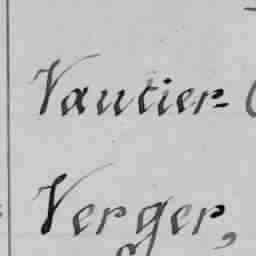 Vautier-
Verger,